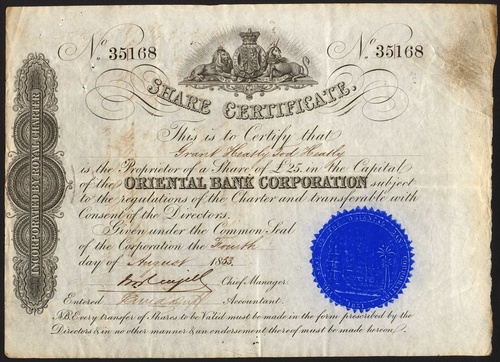 No. 35168 No. 35168
SHARE CERTIFICATE.
This is to Certify that
Grant Heatly Tod Heatly
is the Proprietor of a Share of £25. in the Capital
of the ORIENTAL BANK CORPORATION subject
to the regulations of the Charter and transferable with
Consent of the Directors.
Given under the Common Seal
of the Corporation the Fourth
day of August 1853.
Chief Manager.
Entered Accountant.
NB. Every transfer of Shares to be Valid must be made in the form prescribed by the
Directors & in no other manner & an endorsement thereof must be made hereon.
INCORPORATED BY ROYAL CHARTER